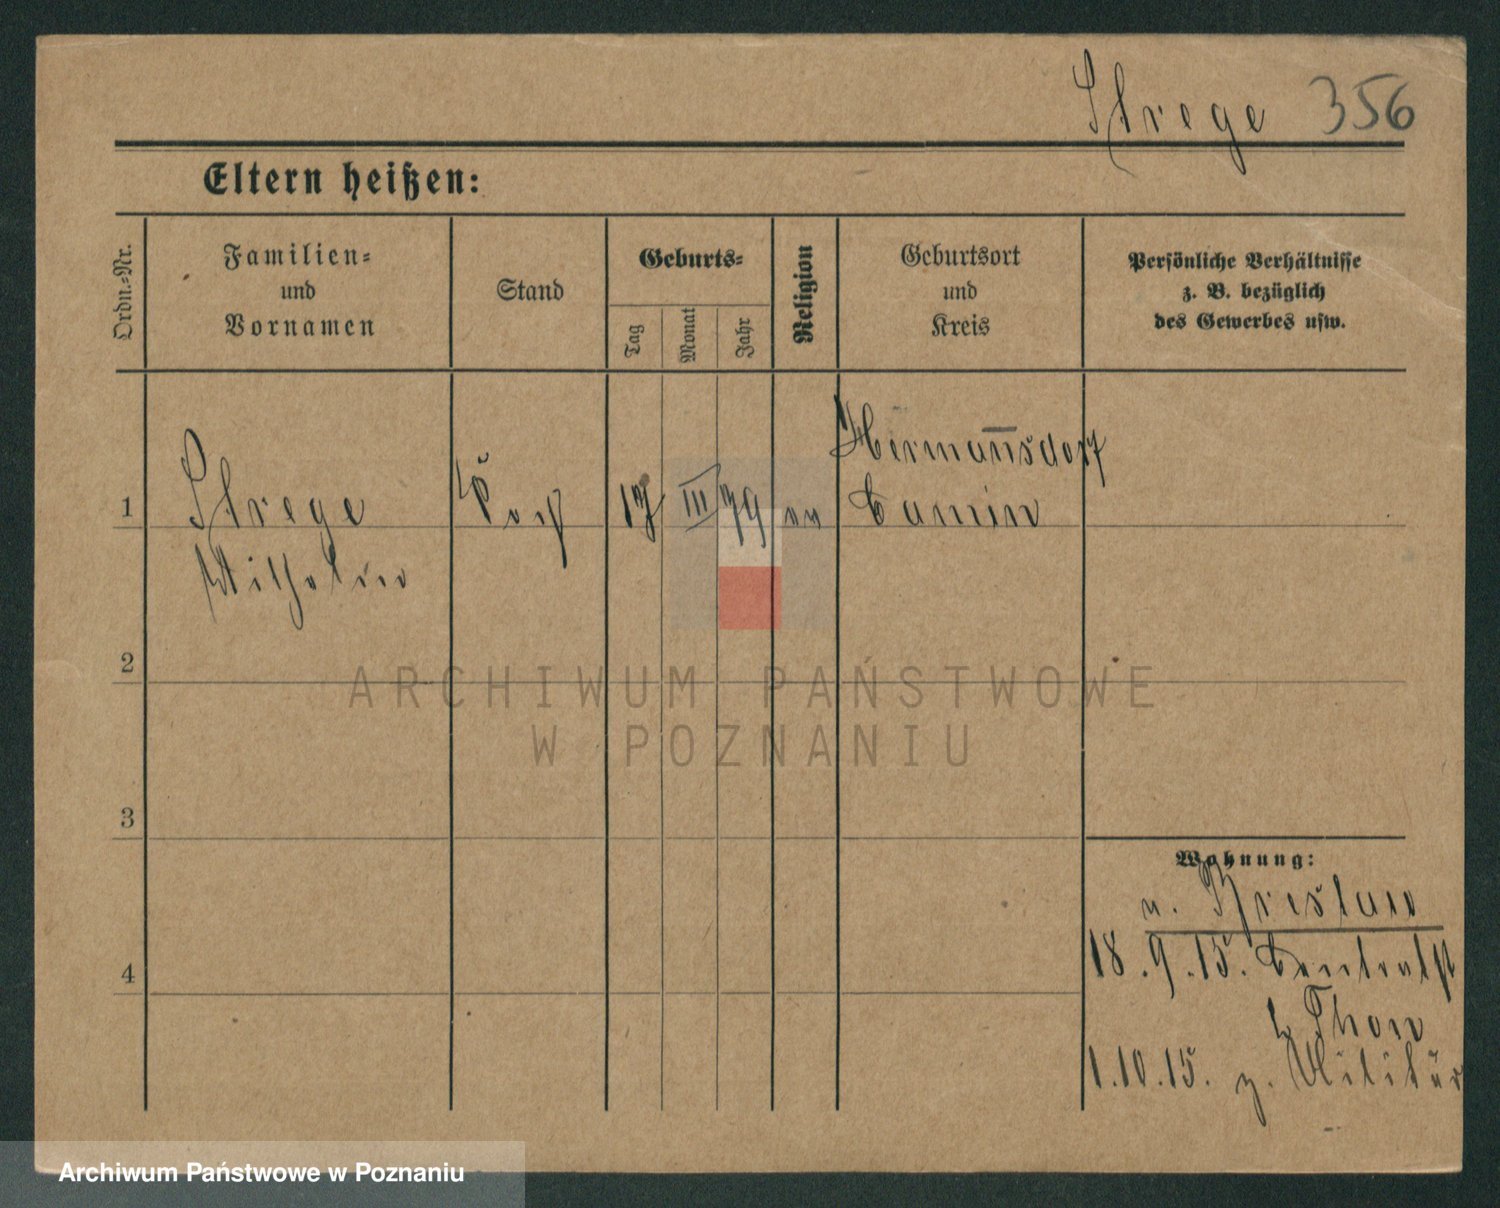 Strege 356
Eltern heißen:
Ordn.-Nr.
Familien-
und
Vornamen
Stand
Geburts-
Tag
Monat
Jahr
Religion
Geburtsort
und
Kreis
Persönliche Verhältnisse
z. B. bezüglich
des Gewerbes usw.
1
Strege
Wilhelm
III
79
ev
Hermannsdorf
Camin
2
3
4
ARCHIWUM PAŃSTWOWE
W POZNANIU
Wohnung:
v. Breslau
18.9.15. Centralst
b Thon
1.10.15. z. Militär
Archiwum Państwowe w Poznaniu